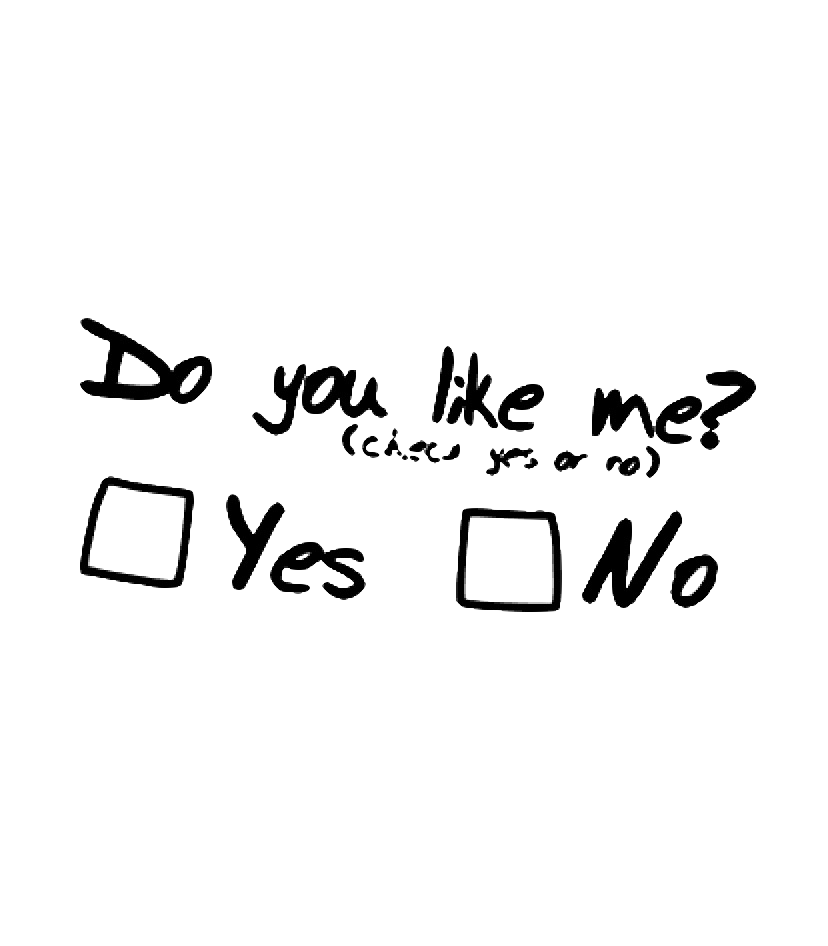 Do you like me?
(check yes or no)
Yes No